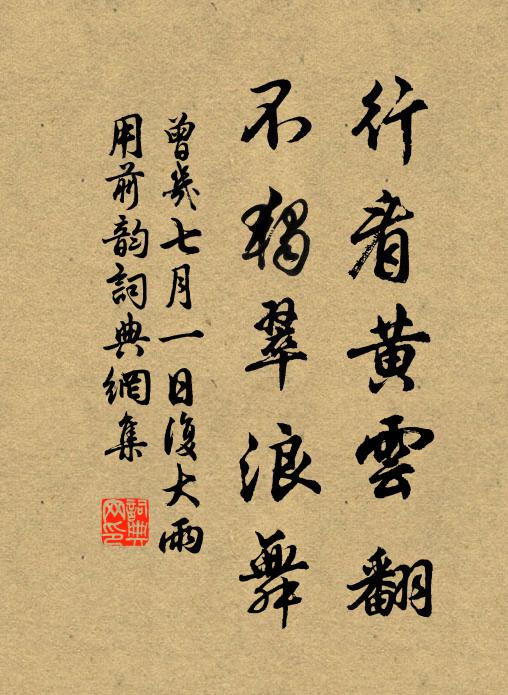 行看黄雲翻
不獨翠浪舞
曾幾七月一日復大雨
用前韵詞典網集
詞典
网印